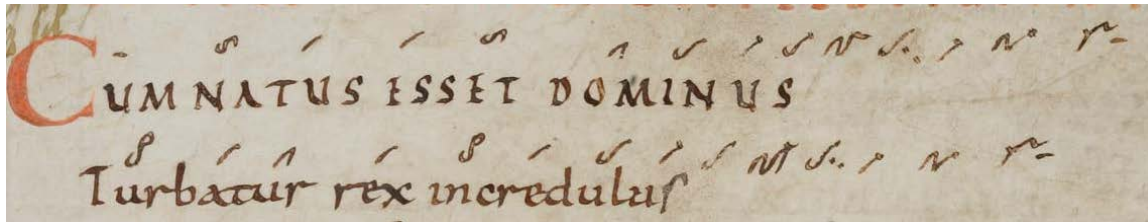 CUM NATUS ESSET DOMINUS
Turbatur rex incredulus